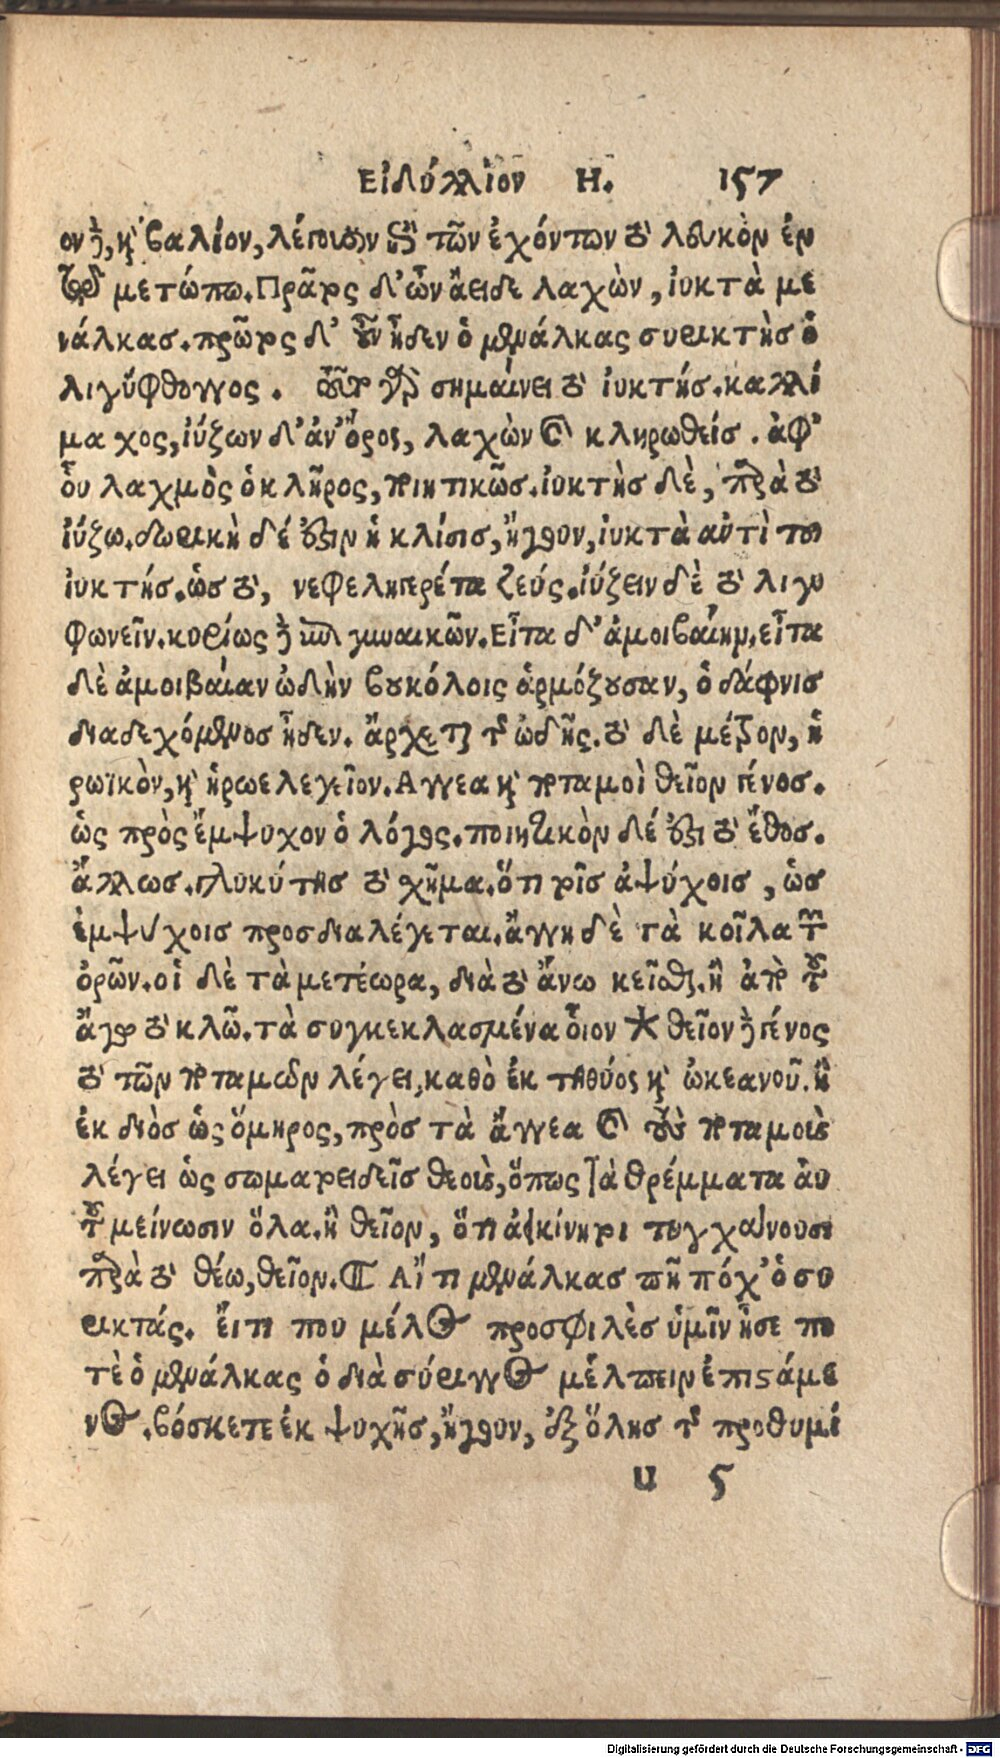 Εἰδύλλιον Η. 157
ον δὲ, καὶ βαλίον, λέγουσιν ἐπὶ τῶν ἐχόντων τὸ λευκὸν ἐν
τῷ μετώπῳ. Πρᾶτος δ' ὦν ἄειδε λαχὼν, ἰυκτὰ με
νάλκας. πρῶτος δ' οὖν ᾖδεν ὁ μενάλκας συρικτὴς ὁ
λιγύφθογγος. τοῦτο γὰρ σημαίνει τὸ ἰυκτής. καλλί
μαχος, ἰύζων δ' ἀν' ὄρος, λαχὼν ἀντὶ κληρωθείς. ἀφ'
οὗ λαχμὸς ὁ κλῆρος, ποιητικῶς. ἰυκτὴς δὲ, παρὰ τὸ
ἰύζω. δωρικὴ δέ ἐστιν ἡ κλίσις, ἤγουν, ἰυκτὰ αὐτὶ του
ἰυκτής. ὡς τὸ, νεφεληγερέτα ζεύς. ἰύζειν δὲ τὸ λιγυ
φωνεῖν. κυρίως δὲ ἐπὶ γυναικῶν. Εἶτα δ' ἀμοιβαίην. εἶτα
δὲ ἀμοιβαίαν ᾠδὴν βουκόλοις ἁρμόζουσαν, ὁ δάφνις
διαδεχόμενος ᾖδεν. ἄρχεται τῆς ᾠδῆς. τὸ δὲ μέτρον, ἡ
ρωϊκὸν, καὶ ἡρωελεγεῖον. Αγγεα καὶ ποταμοὶ θεῖον γένος.
ὡς πρὸς ἔμψυχον ὁ λόγος. ποιητικὸν δέ ἐστι τὸ ἔθος.
ἄλλως. γλυκύτης τὸ σχῆμα. ὅτι τοῖς ἀψύχοις, ὡς
ἐμψύχοις προσδιαλέγεται. ἄγγη δὲ τὰ κοῖλα τῶν
ὀρῶν. οἱ δὲ τὰ μετέωρα, διὰ τὸ ἄνω κεῖσθαι. ἢ ἀπὸ τοῦ
ἄγω τὸ κλῶ. τὰ συγκεκλασμένα οἷον * θεῖον δὲ γένος
τὸ τῶν ποταμῶν λέγει, καθὸ ἐκ τηθύος καὶ ὠκεανοῦ. ἢ
ἐκ διὸς ὡς ὅμηρος, πρὸς τὰ ἄγγεα καὶ τοὺς ποταμοὺς
λέγει ὡς σωματοειδεῖς θεοὺς, ὅπως τὰ θρέμματα αὐ
τοῦ μείνωσιν ὅλα. ἢ θεῖον, ὅτι ἀεικίνητοι τυγχάνουσι
παρὰ τὸ θέω, θεῖον. ¶ Αἴ τι μενάλκας πῆ πόχ' ὁ συ
ρικτάς. εἴ τι που μέλος προσφιλὲς ὑμῖν ᾖσε πο
τὲ ὁ μενάλκας ὁ διὰ σύριγγος μέλπειν ἐπιστάμε
νος. βόσκετε ἐκ ψυχῆς, ἤγουν, ἐξ ὅλης τῆς προθυμί
u 5
Digitalisierung gefördert durch die Deutsche Forschungsgemeinschaft - DFG